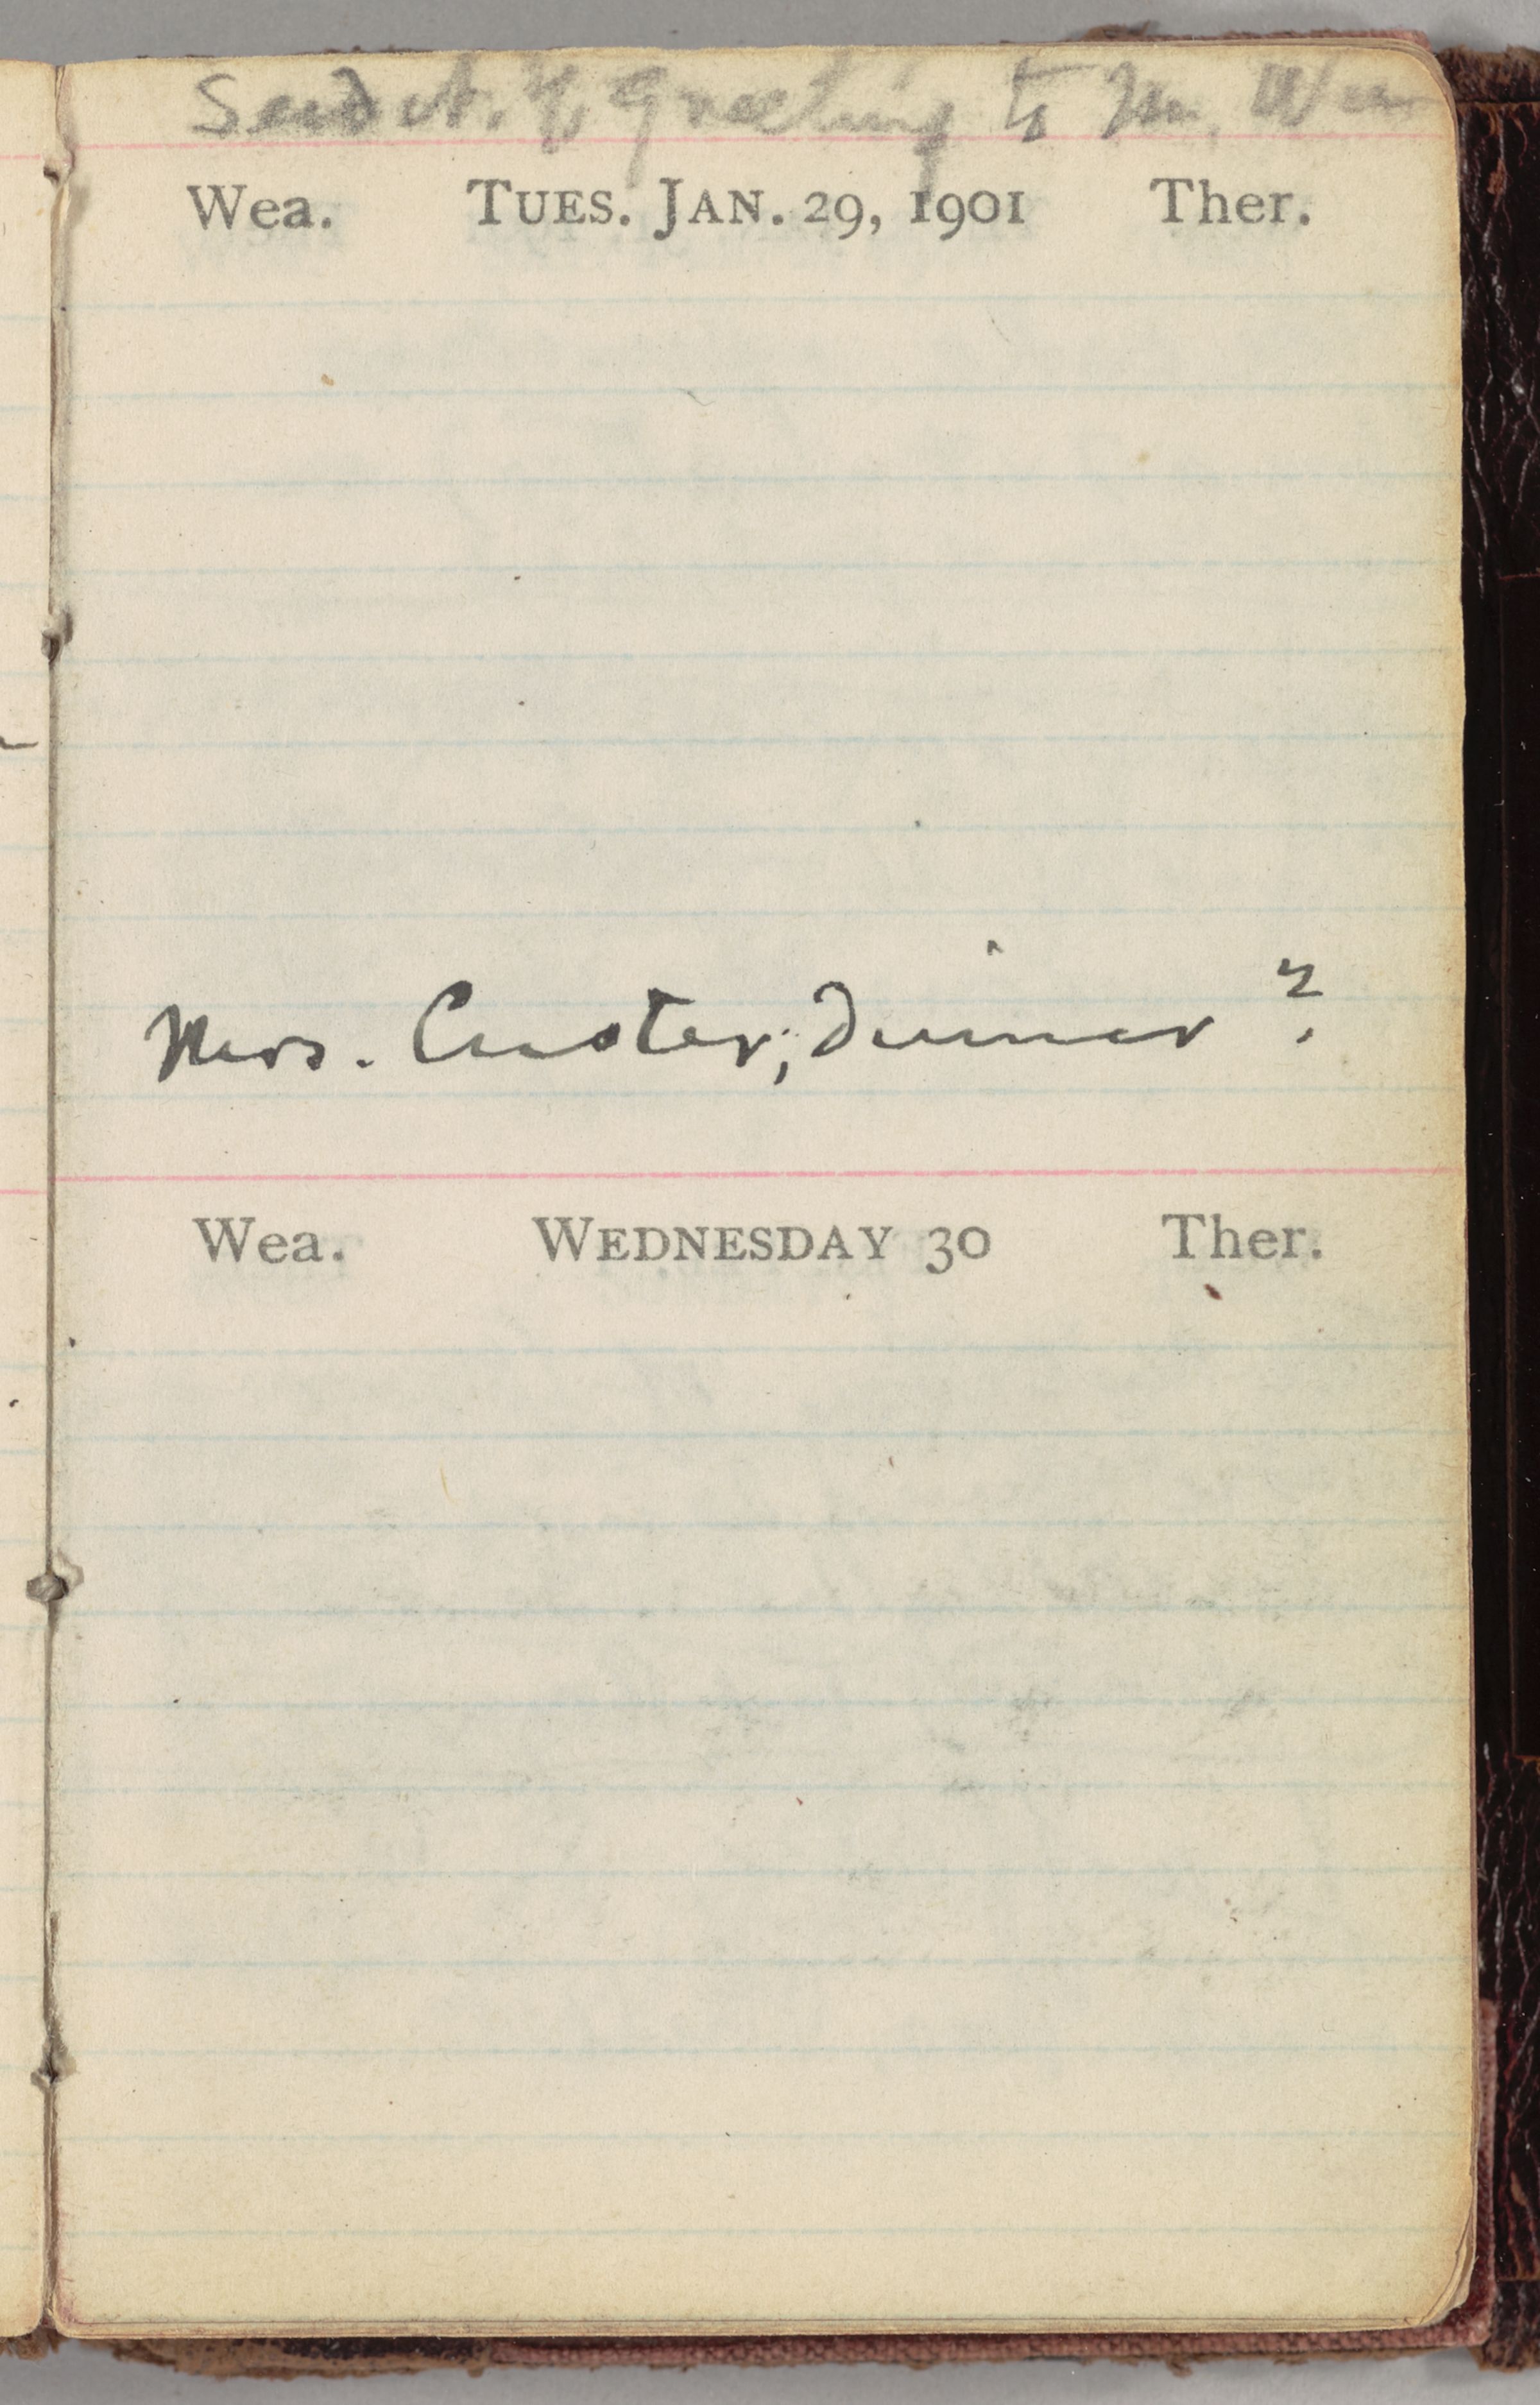 Send greeting to
Wea. TUES. JAN. 29, 1901 Ther.
Mrs. Custer; dinner?
Wea. WEDNESDAY 30 Ther.